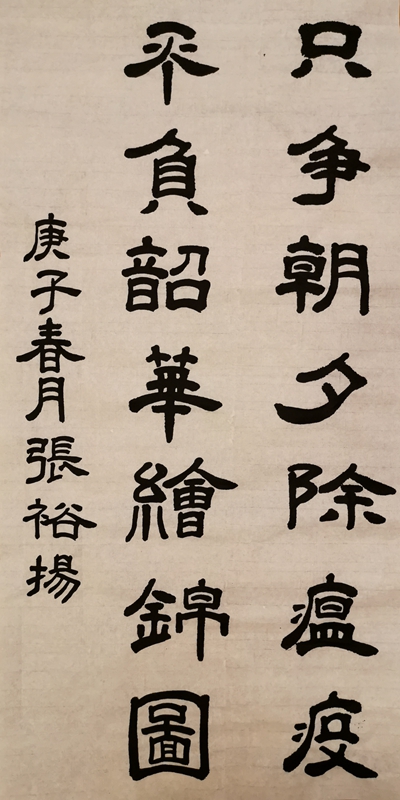 只争朝夕除瘟疫
不負韶華繪錦圖
庚子春月張裕揚